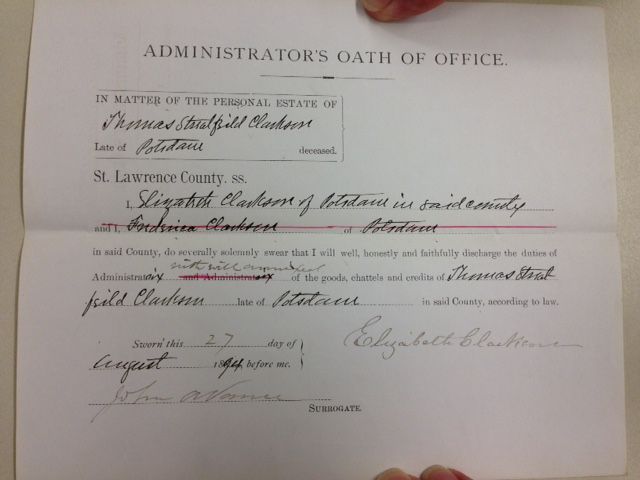 ADMINISTRATOR'S OATH OF OFFICE.
IN MATTER OF THE PERSONAL ESTATE OF
Thomas Streatfeild Clarkson
Late of Potsdam deceased.
St. Lawrence County. ss.
I, Elizabeth Clarkson of Potsdam in said county
and I, Frederica Clarkson of Potsdam
in said County, do severally solemnly swear that I will well, honestly and faithfully discharge the duties of
with will annexed
Administratrix and Administratrix of the goods, chattels and credits of Thomas Streat
feild Clarkson late of Potsdam in said County, according to law.
Sworn this 27 day of
August 1894, before me.
Elizabeth Clarkson
John
SURROGATE.